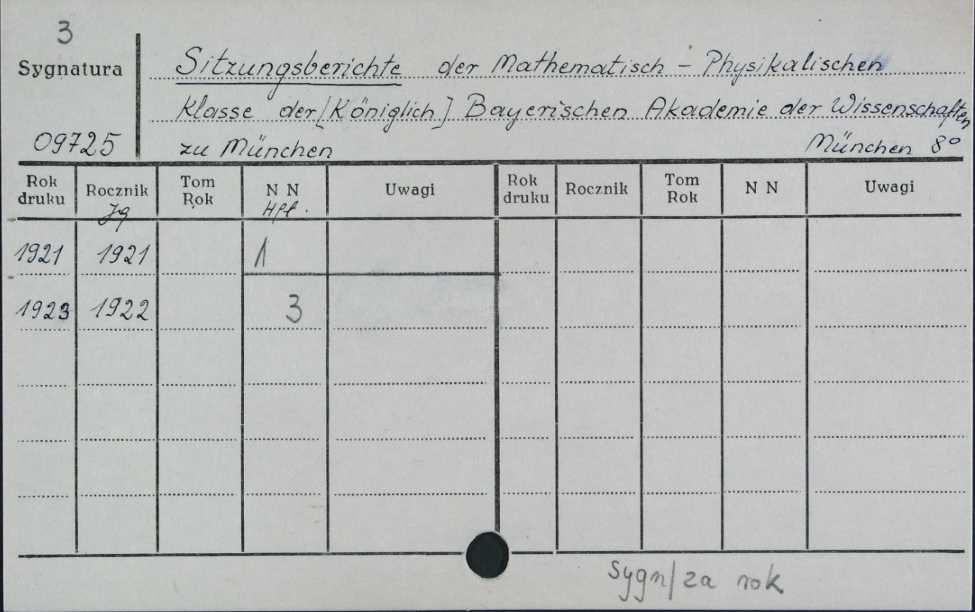 3
Sygnatura
Sitzungsberichte der Mathematisch - Physikalischen
Klasse der [Königlich] Bayerischen Akademie der Wissenschaften
09725 zu München München 8°
Rok druku Rocznik Tom Rok N N Uwagi Rok druku Rocznik Tom Rok N N Uwagi
Jg Hft.
1921 1921 1
1923 1922 3
Sygn/za rok